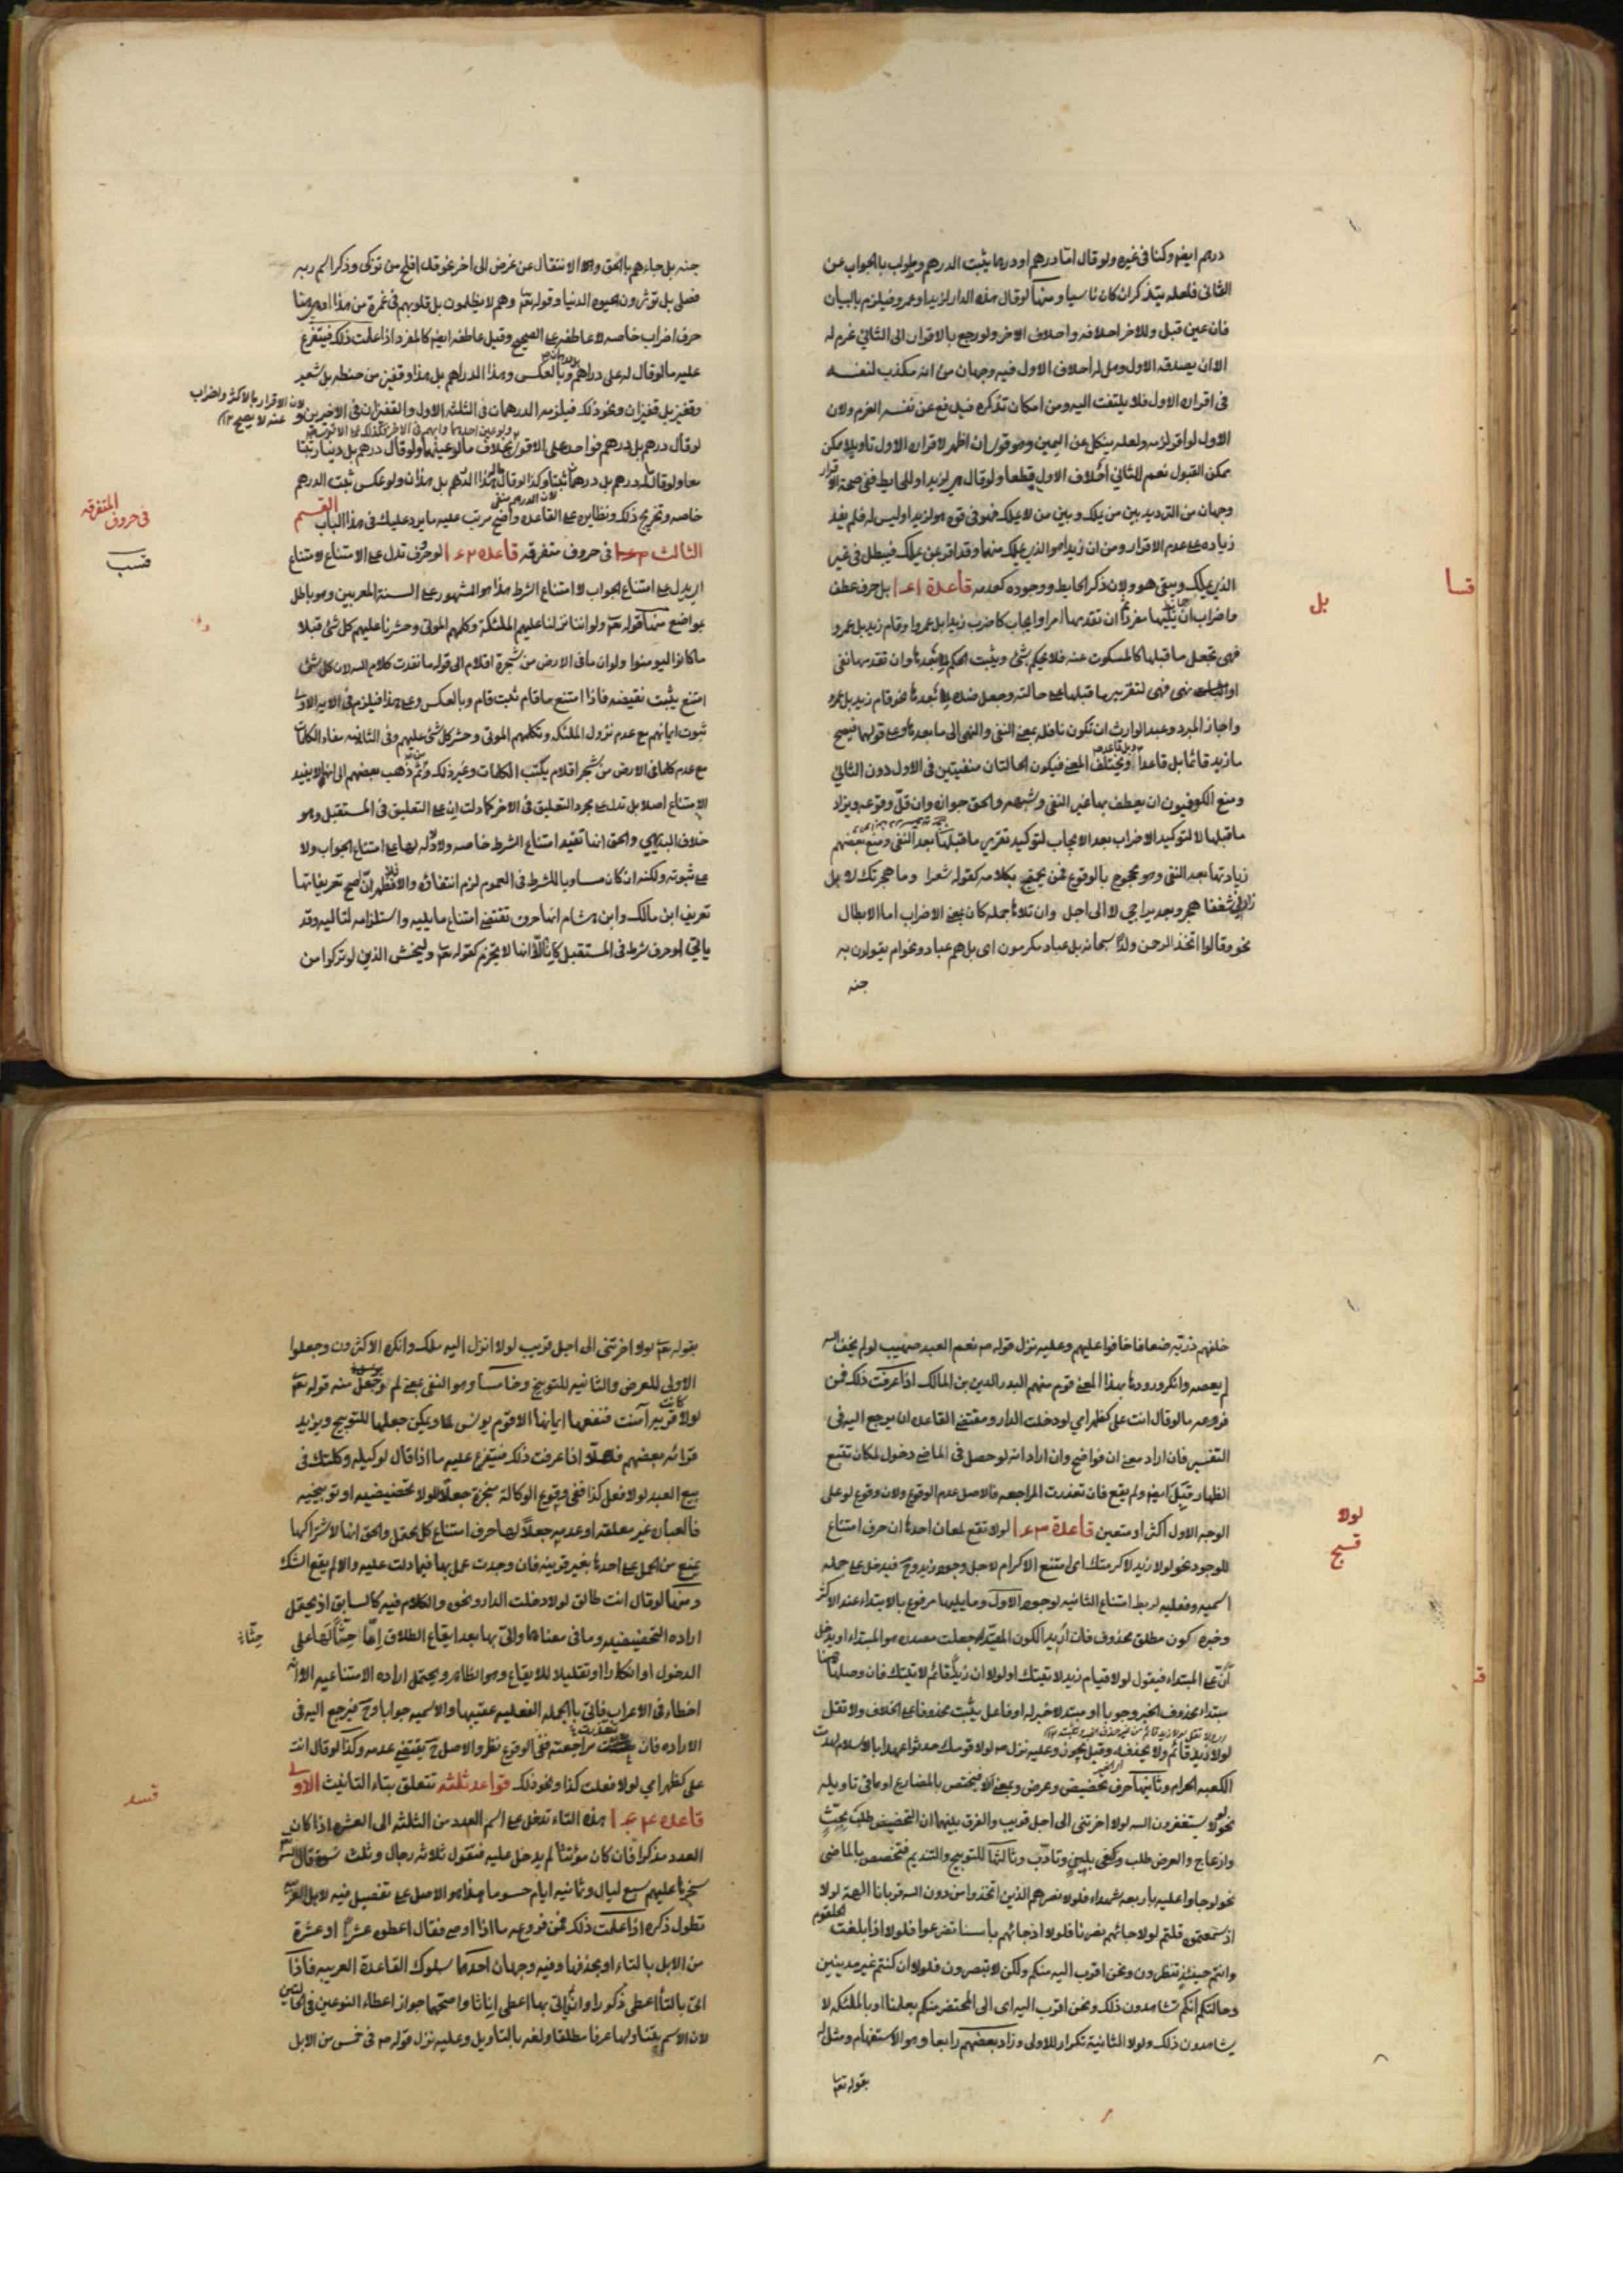 درهم ايضا وكذا في غيره ولو قال امّا درهم او درهما يثبت الدرهم ويطولب بالجواب عن
الثاني فلعله يتذكر ان كان ناسيا ومنها لو قال هذه الدار لزيد او عمرو فيلزم بالبيان
فان عين قبل وللاخر احلافه واحلاف الاخر ولو رجع بالاقرار الى الثاني غرم له
الا ان يصدقه الاول وهل له احلاف الاول فيه وجهان من انه مكذب لنفسه
في اقراره الاول فلا يلتفت اليه ومن امكان تذكره فيدفع عن نفسه الغرم ولان
الاول لو اقر لزمه ولعله ينكل عن اليمين وهو قوى ان اظهر لاقراره الاول تاويلا يمكن
يمكن القبول نعم للثاني احلاف الاول قطعا ولو قال هي لزيد او للحايط ففي صحة الاقرار
وجهان من الترديد بين من يملك وبين من لا يملك فهو في قوة هو لزيد او ليس له فلم يفد
زياده على عدم الاقرار ومن ان زيدا هو الذي يملك منهما وقد اقر بمن يملك فيبطل في غير
الذي يملك ويبقى هو ولان ذكر الحايط ووجوده كعدمه قاعدة ١٤١ بل حرف عطف
واضراب ان تلاها مفرد ثم ان تقدمها امر او ايجاب كاضرب زيدا بل عمروا وقام زيد بل عمرو
فهى تجعل ما قبلها كالمسكوت عنه فلا يحكم بشئ ويثبت الحكم لما بعدها وان تقدمها نفى
او نهى فهى لتقرير ما قبلها على حالته وجعل ضده لما بعدها نحو قام زيد بل عمرو
واجاز المبرد وعبد الوارث ان تكون ناقلة بمعنى النفى والنهى الى ما بعدها وعلى قولهما فيصح
ما زيد قائما بل قاعدا وبل قاعد ويختلف المعنى فيكون الحالتان منفيتين في الاول دون الثاني
ومنع الكوفيون ان يعطف بها غير النفى وشبهه والحق جوازه وان قلّ وقوعه ويزاد
ما قبلها لا لتوكيد الاضراب بعد الايجاب لتوكيد تقرير ما قبلها بعد النفى ومنع بعضهم
زيادتها بعد النفى وهو محجوج بالوقوع ممن يحتج بكلامه كقوله شعرا وما هجرتك لا بل
زادني شغفا هجر وبعد تراخي لا الى اجل وان تلاها جملة كان بمعنى الاضراب اما الابطال
نحو وقالوا اتخذ الرحمن ولدا سبحانه بل عباد مكرمون اى بل هم عباد ونحو ام يقولون به
جنه
قسا
بل
جنه بل جاءهم بالحق واما الانتقال عن غرض الى اخر نحو قد افلح من تزكى وذكر اسم ربه
فصلى بل تؤثرون الحيوة الدنيا وقوله تعا وهم لا يظلمون بل قلوبهم في غمرة من هذا او هى هنا
حرف اضراب خاصه لا عاطفه على الصحيح وقيل عاطفه ايضا كالمفرد اذا علمت ذلك فيتفرع
عليه ما لو قال له على دراهم وبالعكس وهذا الدراهم بل هذا وقفيز من حنطه بل شعير
وقفيز بل قفيزان ونحو ذلك فيلزمه الدرهمان في الثلثه الاول والقفيزان في الاخيرين و
لان الاقرار بالاكثر واضراب
عنه لا يصح
لو قال درهم بل درهم فواحد على الاقوى بخلاف ما لو عينهما ولو قال درهم بل دينار ثبتا
معا ولو قال درهم بل درهما ثبتا وكذا لو قال ماله هذا الدرهم بل هذان ولو عكس ثبت الدرهم
خاصه وتخريج ذلك ونظايره على القاعده واضح مرتب عليه ما يرد عليك في هذا الباب القسم
الثالث في حروف متفرقه قاعده ١٤٢ لو حرف تدل على الامتناع لامتناع
اى يدل على امتناع الجواب لامتناع الشرط هذا هو المشهور على السنة المعربين وهو باطل
بمواضع منها قوله تعا ولو اننا نزلنا عليهم الملئكة وكلمهم الموتى وحشرنا عليهم كل شئ قبلا
ما كانوا ليومنوا ولو ان ما في الارض من شجرة اقلام الى قوله ما نفدت كلام الله لان كل شئ
امتنع يثبت نقيضه فاذا امتنع ما قام ثبت قام وبالعكس وعلى هذا فيلزم في الايه الاولى
ثبوت ايمانهم مع عدم نزول الملئكه وتكلمهم الموتى وحشر كل شئ عليهم وفي الثانيه نفاد الكلمات
مع عدم كلما في الارض من شجر اقلام يكتب الكلمات وغير ذلك ومن ثم ذهب بعضهم الى انها لا يفيد
الامتناع اصلا بل تدل على مجرد التعليق في الاخر كما دلت ان على التعليق في المستقبل وهو
خلاف البديهى والحق انما تفيد امتناع الشرط خاصه ولا دلاله لها على امتناع الجواب ولا
على ثبوته ولكنه ان كان مساويا للشرط في العموم لزم انتفاؤه والا فلا فظهر ان اصح تعريفاتها
تعريف ابن مالك وابن هشام انها حرف تقتضى امتناع ما يليه واستلزامه لتاليه وقد
ياتى لو حرف شرط في المستقبل كان الا انها لا تجزم كقوله تعا وليخش الذين لو تركوا من
في حروف المتفرقه
قسب
خلفهم ذرية ضعافا خافوا عليهم وعليه نزل قوله صه نعم العبد صهيب لو لم يخف الله
لم يعصه وانكر ورودها بهذا المعنى قوم منهم البدر الدين بن المالك اذا عرفت ذلك فمن
فروعه ما لو قال انت على كظهر امى لو دخلت الدار ومقتضى القاعده ان يرجع اليه في
التفسير فان اراد معنى ان فواضح وان اراد انه لو حصل في الماضى دخول لكان تقع
الظهار قبل ايضا ولم يقع فان تعذرت المراجعه فالاصل عدم الوقوع ولان وقوع لو على
الوجه الاول اكثر او متعين قاعدة ١٤٣ لولا تقع لمعان احدها ان حرف امتناع
للوجود نحو لولا زيد لاكرمتك اى امتنع الاكرام لاجل وجود زيد وح فيدخل على جمله
اسميه وفعليه لربط امتناع الثانيه لوجود الاولى وما يليها مرفوع بالابتداء عند الاكثر
وخبره كون مطلق محذوف فان اريد الكون المقيد جعلت مصدره هو المبتداء او يدخل
ان على المبتداء فيقول لولا قيام زيد لاتيتك او لولا ان زيدا قائم لاتيتك فان وصلتها
مبتداء محذوف الخبر وجوبا او مبتدا لا خبر له او فاعل يثبت محذوفا على الخلاف ولا تقل
لولا زيد قائم ولا يحذفه وقيل يجوز وعليه نزل صه لولا قومك حدثوا عهد بالاسلام لهدمت
الكعبه الحرام وثانيها حرف تحضيض وعرض وبمعنى الا فيختص بالمضارع او ما في تاويله
نحو لولا يستغفرون الله لولا اخرتنى الى اجل قريب والفرق بينهما ان التحضيض طلب بحث
وازعاج والعرض طلب بلين وتادب وثالثها للتوبيخ والتنديم فتختص بالماضى
نحو لولا جاوا عليه باربعه شهداء فلولا نصرهم الذين اتخذوا من دون الله قربانا الهة لولا
اذ سمعتموه قلتم لولا جائهم نصرنا فلولا اذ جائهم باسنا تضرعوا فلولا اذا بلغت الحلقوم
وانتم حينئذ تنظرون ونحن اقرب اليه منكم ولكن لا تبصرون فلولا ان كنتم غير مدينين
وحالتكم انكم تشاهدون ذلك ونحن اقرب اليه اى الى المحتضر منكم بعلمنا او بالملئكه لا
يشاهدون ذلك ولولا الثانية تكرار للاولى وزاد بعضهم رابعا وهو الاستفهام ومثل له
بقوله تعا
لولا
قسج
بقوله تعا لولا اخرتنى الى اجل قريب لولا انزل اليه ملك وانكره الاكثرون وجعلوا
الاولى للعرض والثانيه للتوبيخ وخامسا وهو النفى بمعنى لم وجعل منه قوله تعا
لولا كانت قرية آمنت فنفعها ايمانها الا قوم يونس لما ويمكن جعلها للتوبيخ ويؤيد
قرائه بعضهم فهلا اذا عرفت ذلك فيتفرع عليه ما اذا قال لوكيله وكلتك في
بيع العبد لولا فعل كذا ففى وقوع الوكالة منجزة جعلا للولا تحضيضيه او توبيخيه
فالعباره غير معلقه او عدمه جعلا لها حرف امتناع كل يحتمل والحق انها لاشتراكها
يمنع من الحمل على احدها بغير قرينه فان وجدت عمل بها فيما دلت عليه والا لم يقع الشك
ومنها لو قال انت طالق لولا دخلت الدار ونحوه والكلام فيه كالسابق اذ يحتمل
اراده التحضيضيه وما في معناها واتى بها بعد ايقاع الطلاق اما حثا لها على
الدخول او انكارا او تقليلا للايقاع وهو الظاهر ويحتمل اراده الامتناعيه الا انه
اخطاء في الاعراب فاتى بالجمله الفعليه عقيبها والاسميه جوابا وح فيرجع اليه في
الاراده فان تعذرت مراجعته ففى الوقوع نظر والاصل ح يقتضى عدمه وكذا لو قال انت
على كظهر امى لولا فعلت كذا ونحو ذلك قواعد ثلثه تتعلق بتاء التانيث الاولى
قاعده ١٤٤ هذه التاء تدخل على اسم العدد من الثلثه الى العشره اذا كان
العدد مذكرا فان كان مؤنثا لم يدخل عليه فتقول ثلاثه رجال وثلث نسوة قال الله
سخرها عليهم سبع ليال وثمانيه ايام حسوما هذا هو الاصل على تفصيل فيه لاهل العربيه
تطول ذكره اذا علمت ذلك فمن فروعه ما اذا اوصى فقال اعطوه عشرا او عشرة
من الابل بالتاء او بحذفها وفيه وجهان احدهما سلوك القاعدة العربيه فاذا
اتى بالتاء اعطى ذكورا وان لم ياتى بها اعطى اناثا واصحهما جواز اعطاء النوعين في الحالتين
لان الاسم يتناولها عرفا مطلقا ولغه بالتاويل وعليه نزل قوله صه في خمس من الابل
حثا
قسد